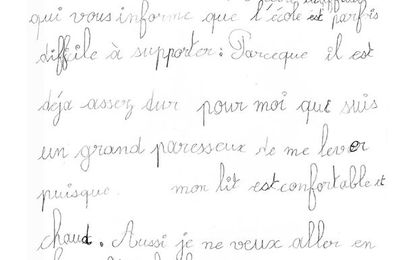 qui vous informe que l'école est parfois
difficile à supporter : Parceque il est
déja assez dur pour moi qui suis
un grand paresseux de me lever
puisque mon lit est confortable et
chaud. Aussi je ne veux aller en